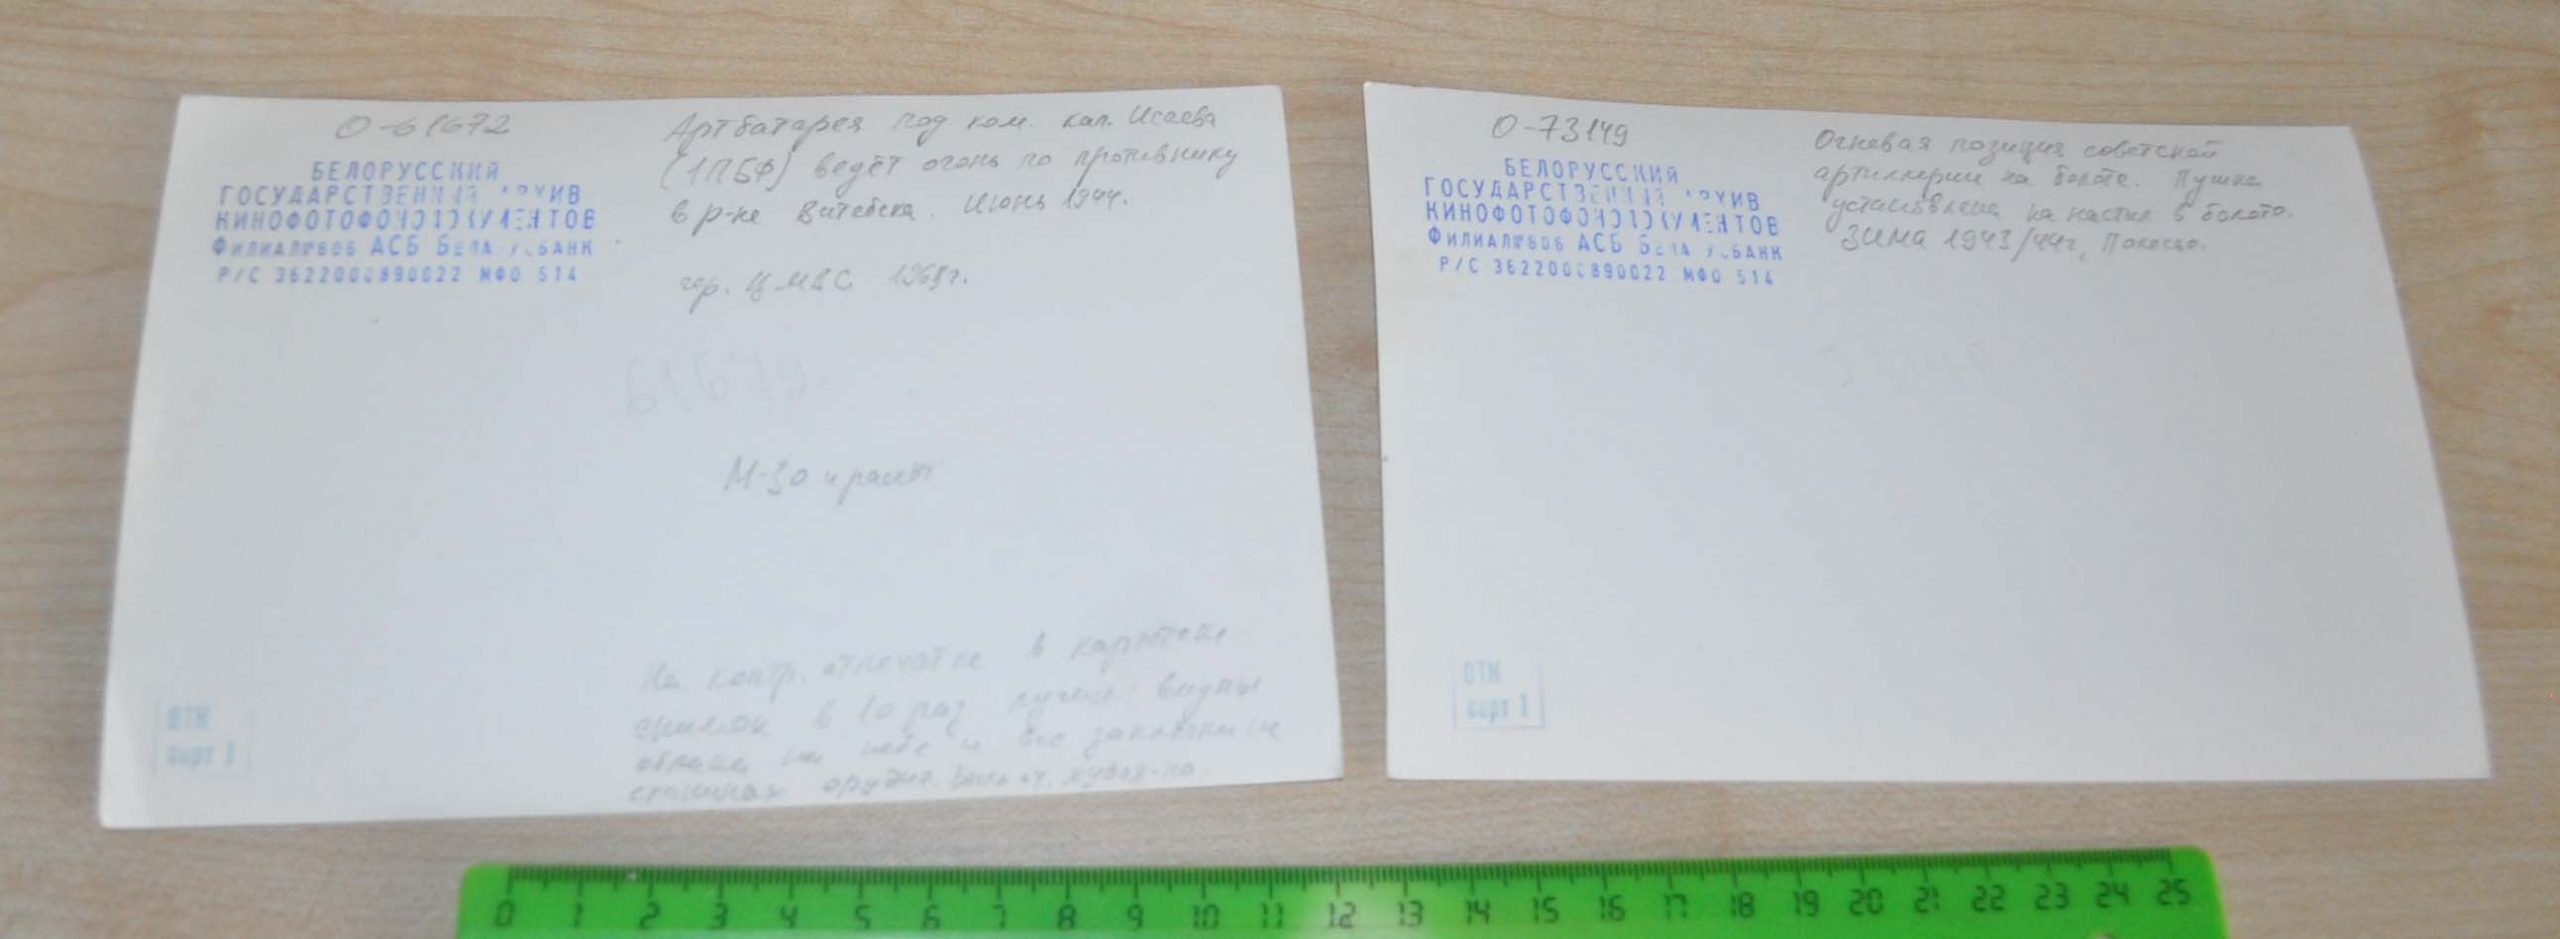 О-61672
БЕЛОРУССКИЙ
ГОСУДАРСТВЕННЫЙ АРХИВ
КИНОФОТОФОНОДОКУМЕНТОВ
ФИЛИАЛ №606 АСБ БЕЛАРУСБАНК
Р/С 3622000890022 МФО 514
Артбатарея под ком. кап. Исаева
(1ПБФ) ведёт огонь по противнику
в р-не Витебска. Июнь 1944.
ЦМВС 1968г.
М-30
ОТК
сорт 1
На контр. отпечатке в картотеке
снимок в 10 раз лучше: видны
облака на небе и все заклёпки на
орудия.
О-73149
БЕЛОРУССКИЙ
ГОСУДАРСТВЕННЫЙ АРХИВ
КИНОФОТОФОНОДОКУМЕНТОВ
ФИЛИАЛ №606 АСБ БЕЛАРУСБАНК
Р/С 3622000890022 МФО 514
Огневая позиция советской
артиллерии на болоте. Пушка
установлена на настил в болото.
Зима 1943/44г, Полесье.
ОТК
сорт 1
0 1 2 3 4 5 6 7 8 9 10 11 12 13 14 15 16 17 18 19 20 21 22 23 24 25